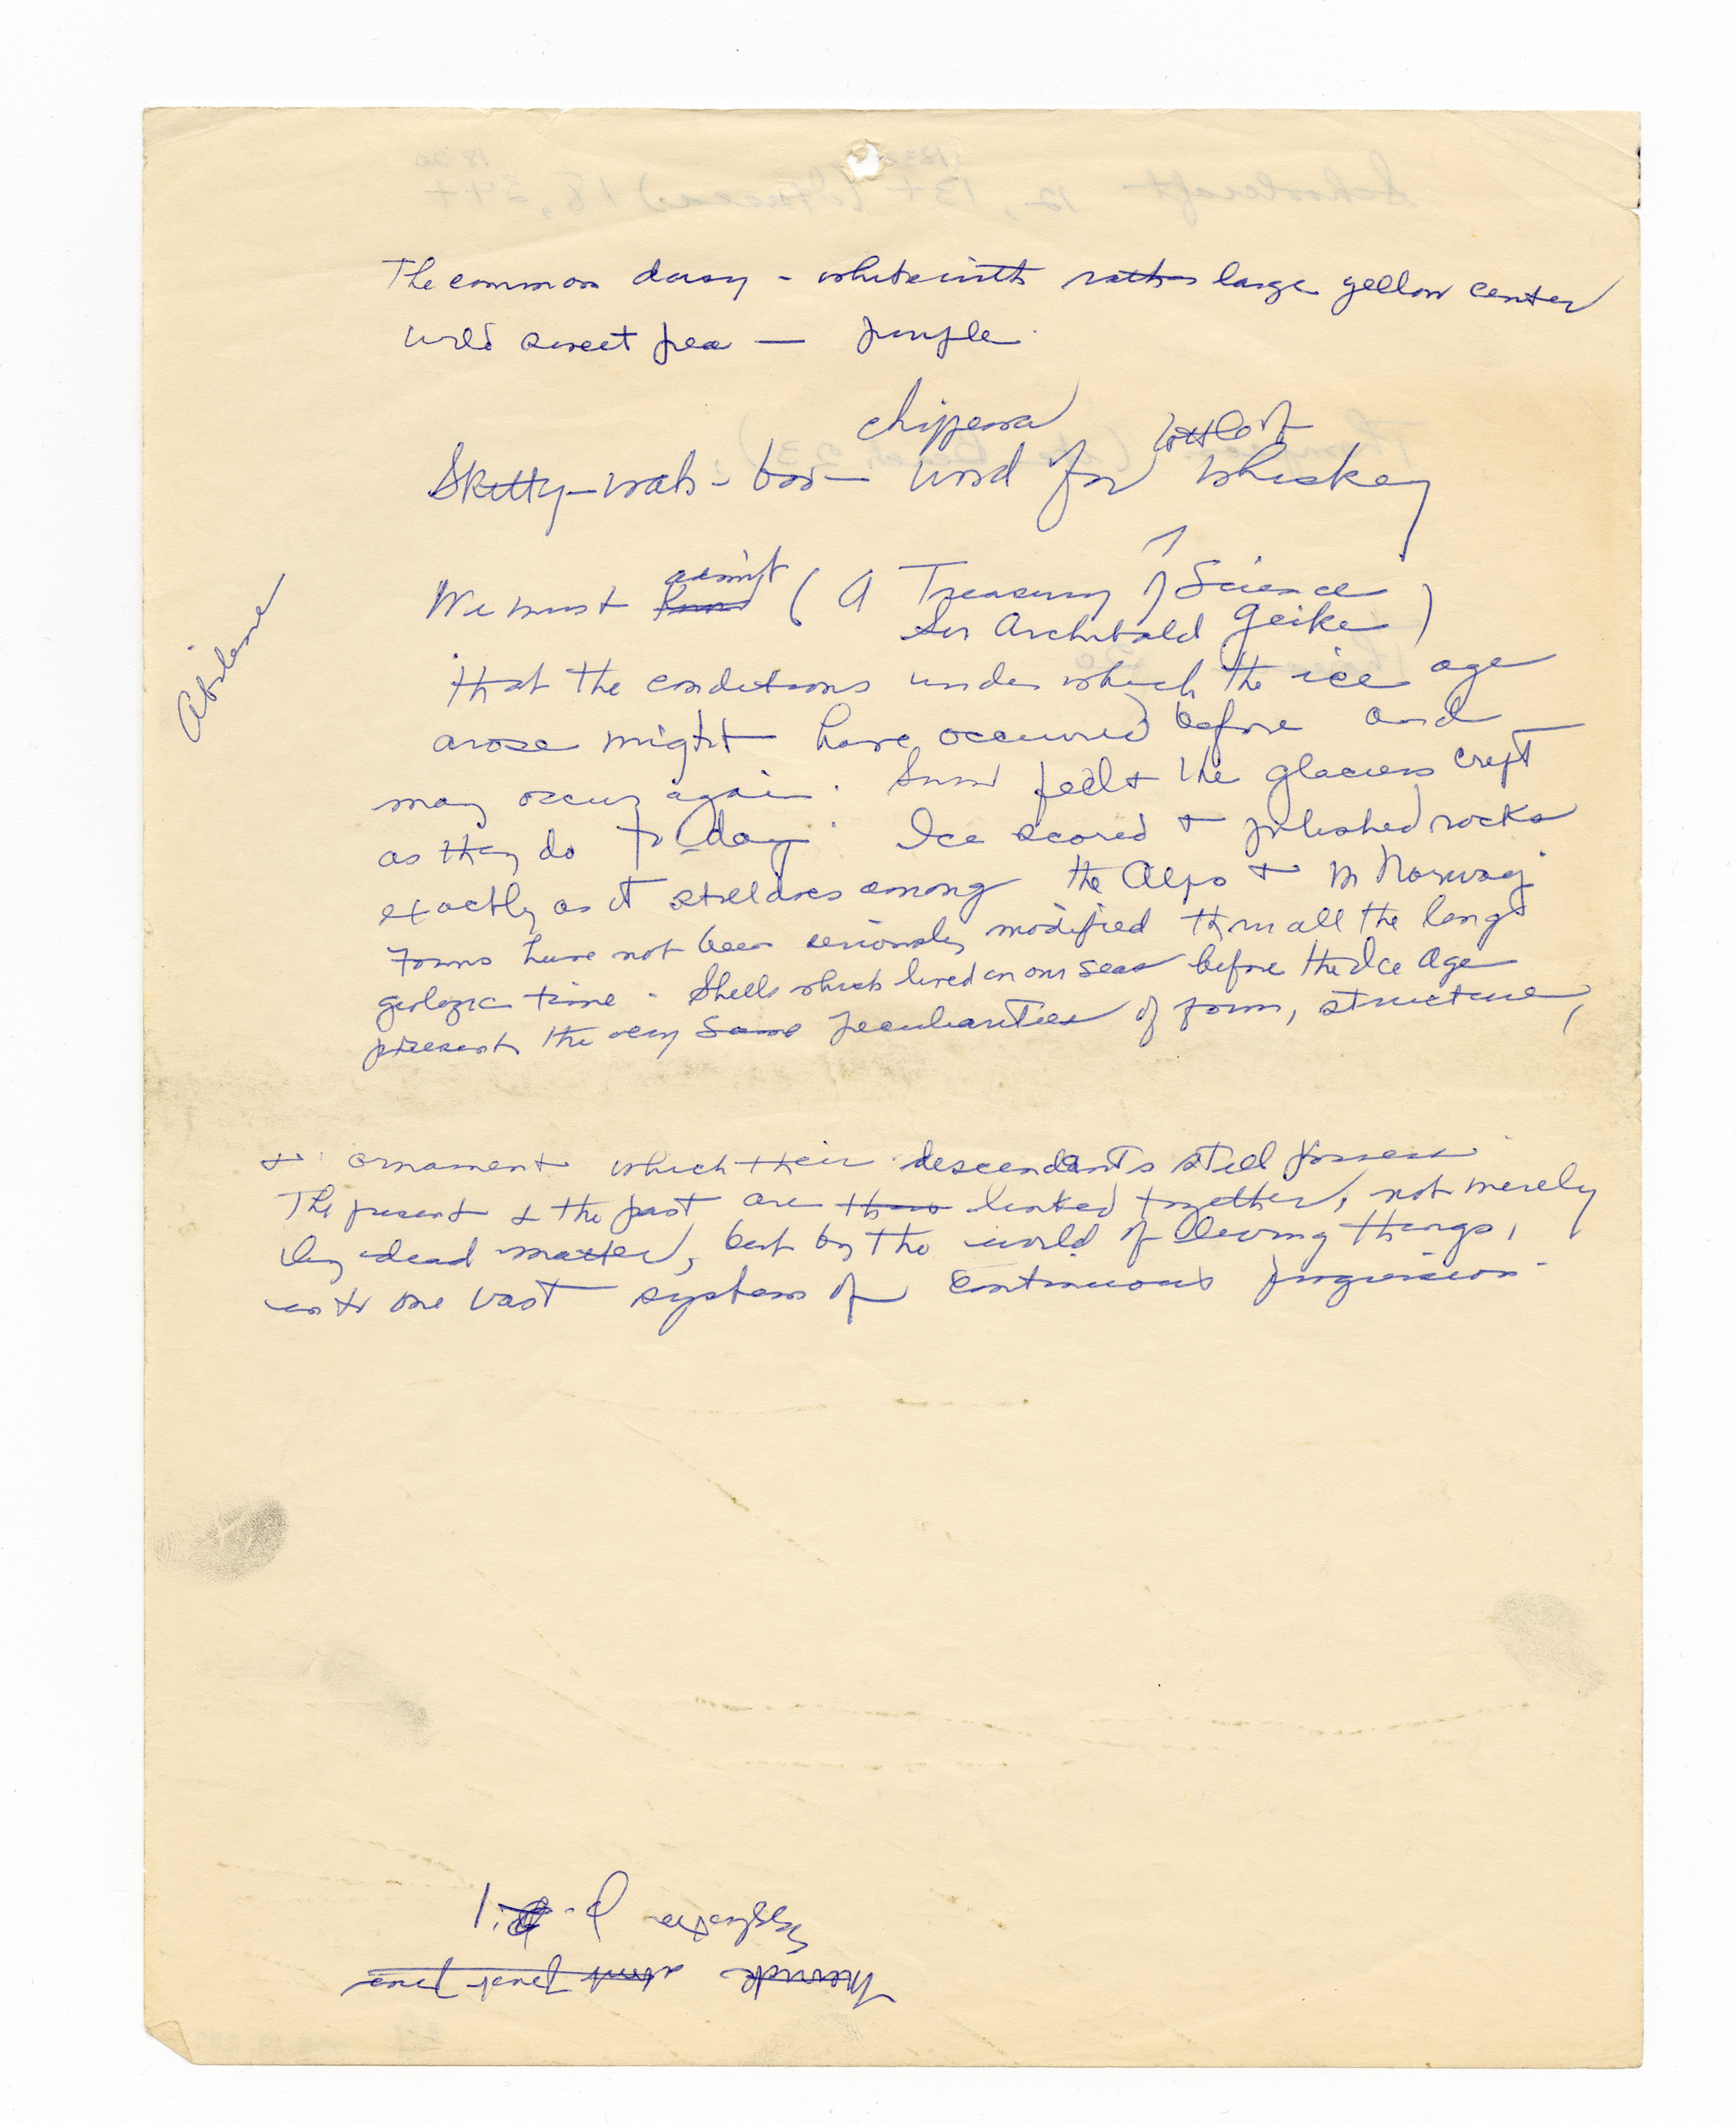 The common daisy - white with rather large yellow center
Wild sweet pea — purple
chippewa bottle of
Skitty-wab-boo— word for whiskey
Abilene
admit
We must know ( A Treasury of Science
Sir Archibald Geike )
that the conditions under which the ice age
arose might have occurred before and
may occur again. Snow fell & the glaciers crept
as they do to-day. Ice scored & polished rocks
exactly as it still does among the Alps & in Norway
Forms have not been seriously modified thru all the long
geologic time. Shells which lived in our seas before the Ice Age
present the very same peculiarities of form, structure,
& ornament which their descendants still possess
The present & the past are thus linked together, not merely
by dead matter, but by the world of living things,
into one vast system of continuous progression.
Merrick about